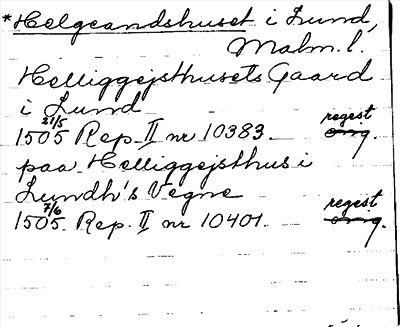 *Helgeandshuset i Lund,
Malm. l.
Helliggejsthusets Gaard
i Lund
1505 21/5 Rep. II nr 10383. regest orig.
paa Helliggejsthus i
Lundh's Vegne
1505 7/6 Rep. II nr 10401. regest orig.